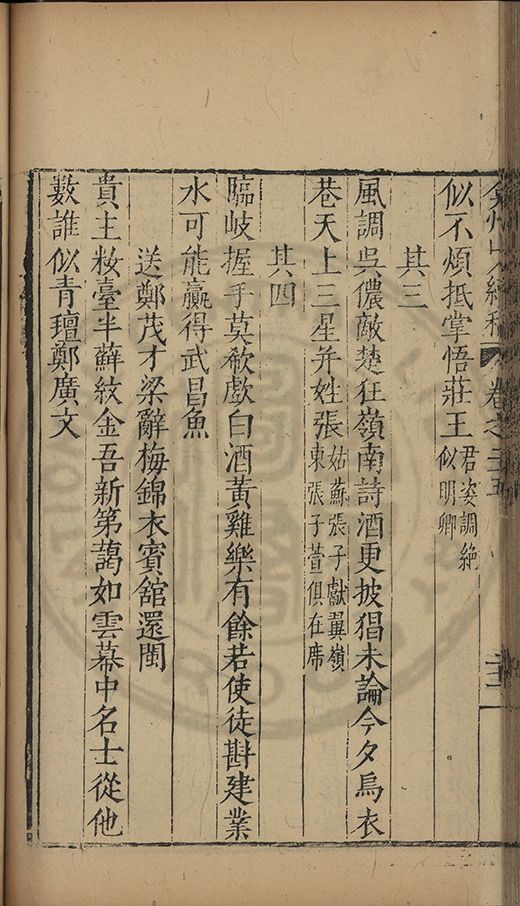 弇州山人續稿 卷之二十五
似不煩抵掌悟莊王 君姿調絕似明卿
其三
風調吳儂敵楚狂嶺南詩酒更披猖未論今夕烏衣
巷天上三星并姓張 姑蘇張子獻翼嶺東張子萱俱在席
其四
臨岐握手莫欷歔白酒黃雞樂有餘若使徒斟建業
水可能贏得武昌魚
送鄭茂才梁辭梅錦衣賓舘還閩
貴主粧臺半蘚紋金吾新第藹如雲幕中名士從他
數誰似青瓊鄭廣文